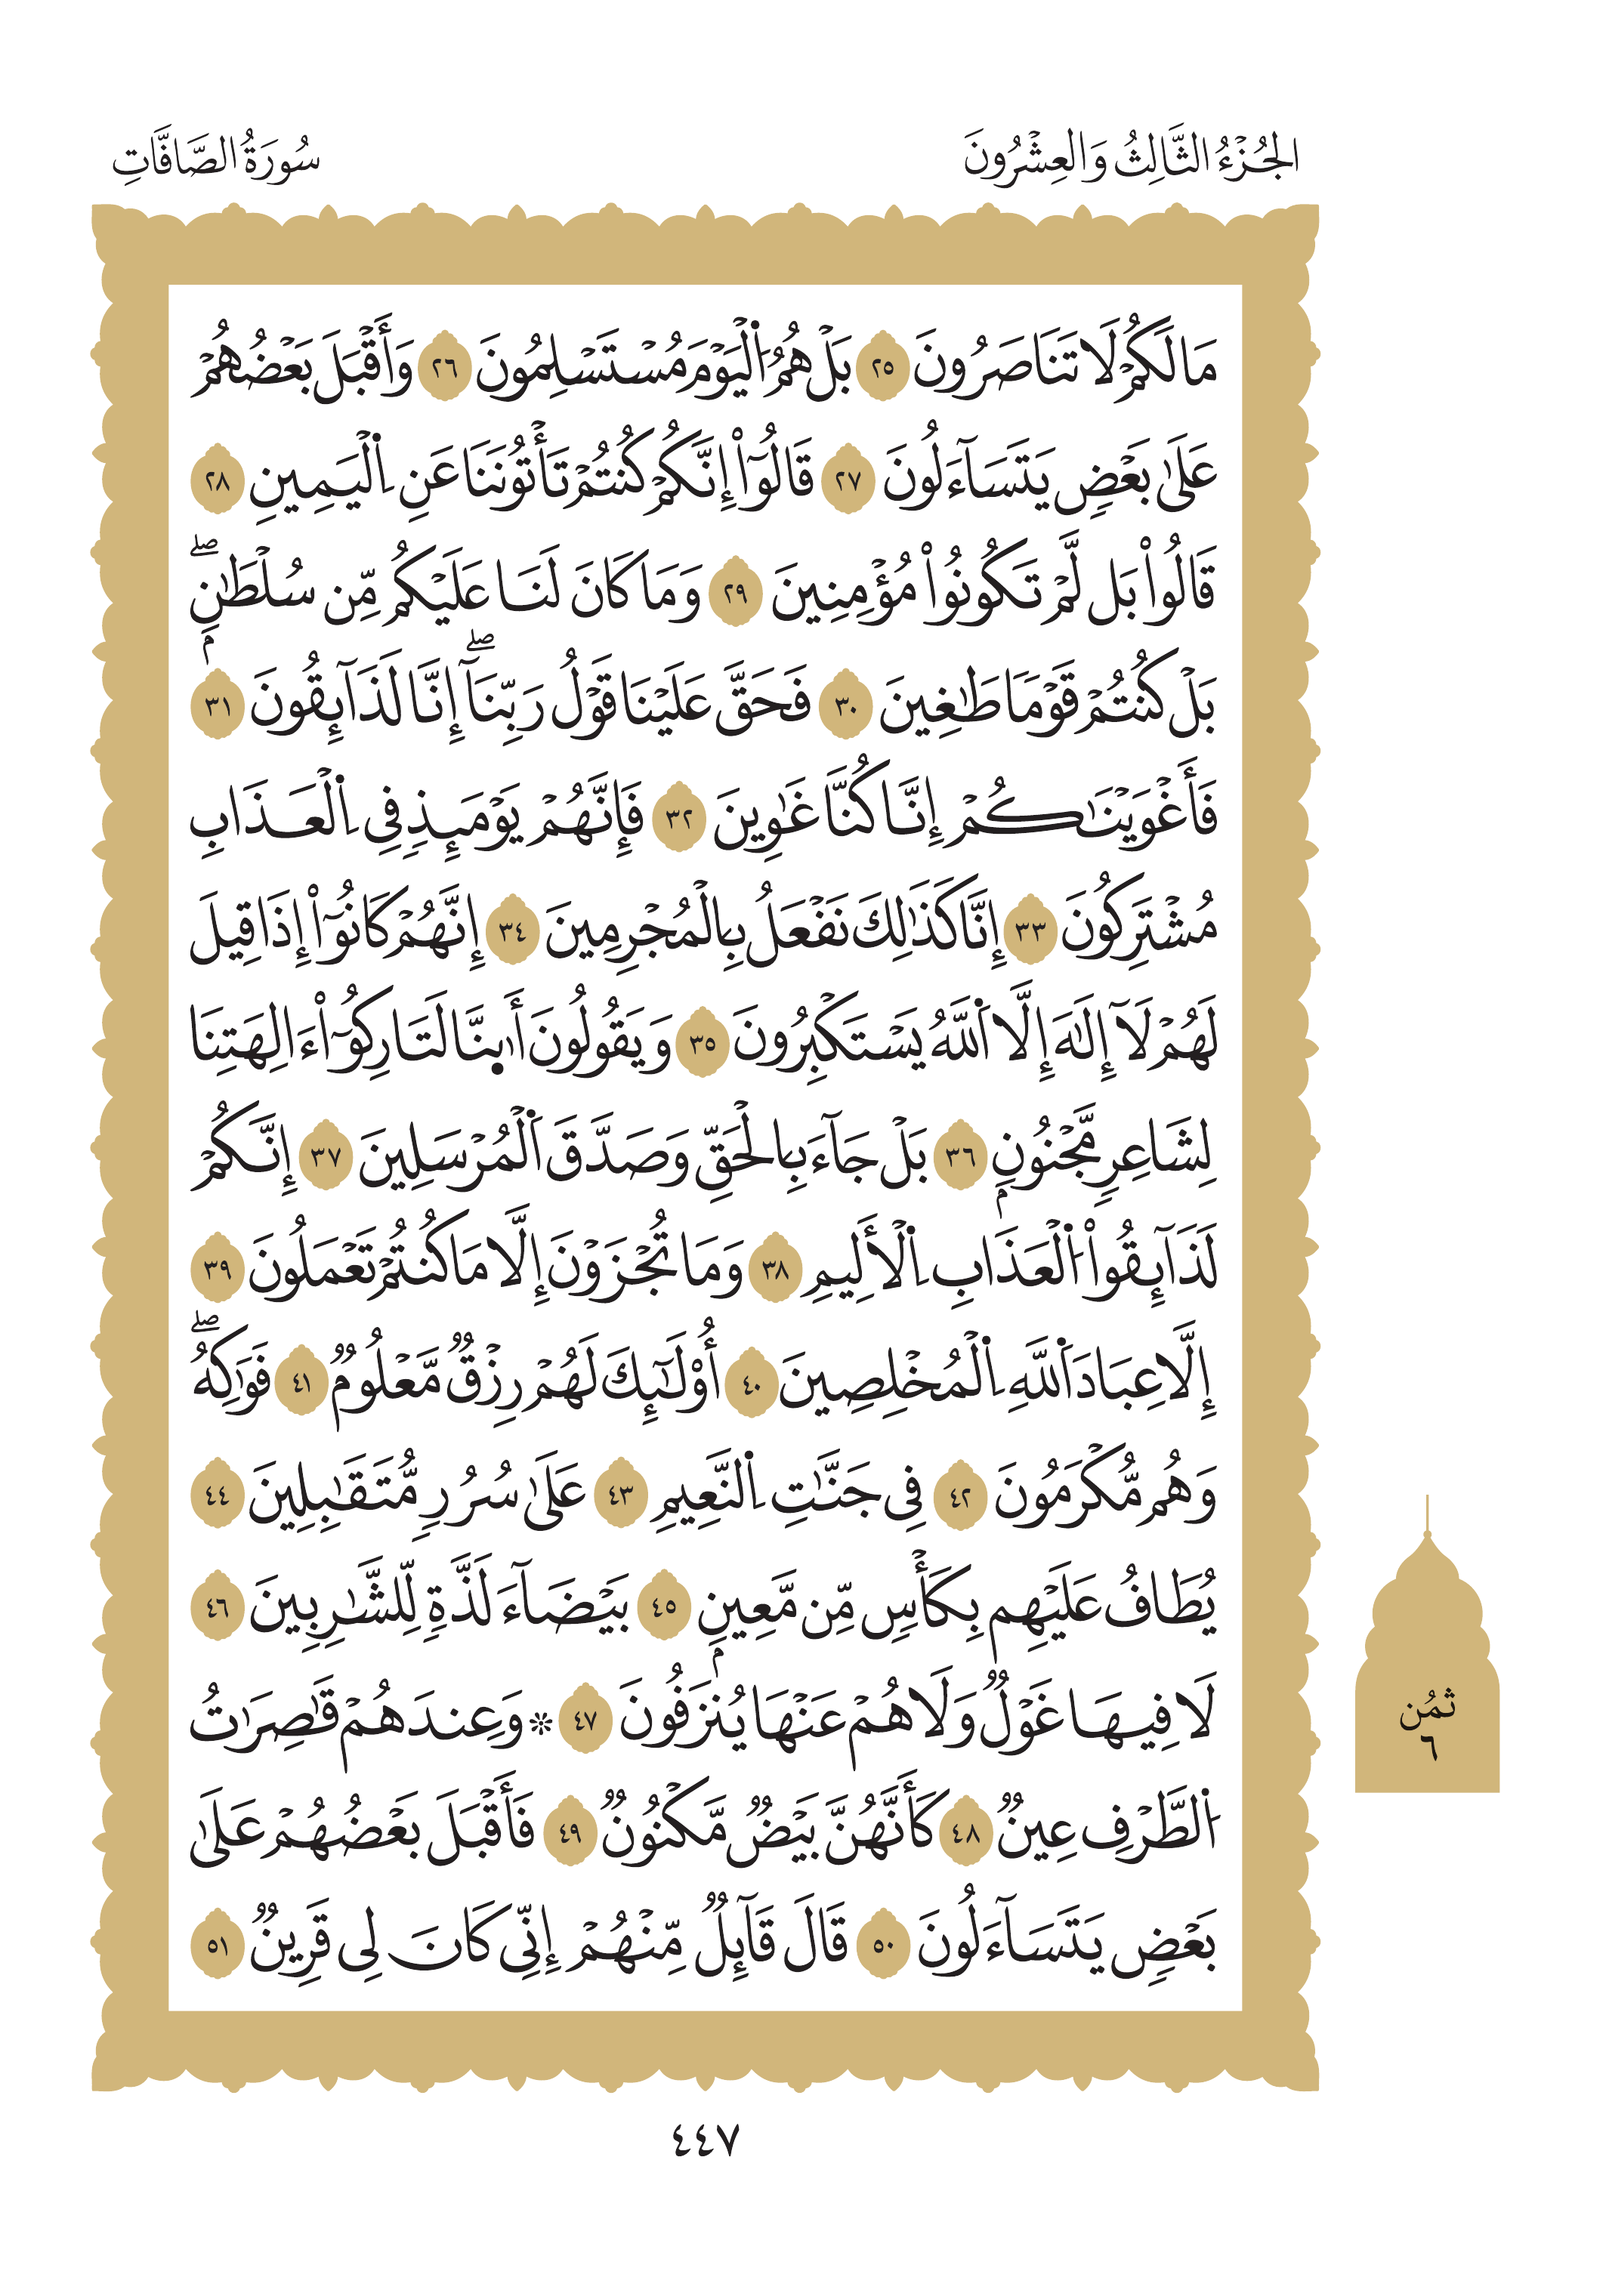 الجُزْءُ الثَّالِثُ وَالعِشْرُونَ
سُورَةُ الصَّافَّاتِ
مَا لَكُمْ لَا تَنَاصَرُونَ ٢٥ بَلْ هُمُ اُ۬لْيَوْمَ مُسْتَسْلِمُونَ ٢٦ وَأَقْبَلَ بَعْضُهُمْ
عَلَىٰ بَعْضٍ يَتَسَآءَلُونَ ٢٧ قَالُوٓاْ إِنَّكُمْ كُنتُمْ تَأْتُونَنَا عَنِ اِ۬لْيَمِينِ ٢٨
قَالُواْ بَل لَّمْ تَكُونُواْ مُؤْمِنِينَ ٢٩ وَمَا كَانَ لَنَا عَلَيْكُم مِّن سُلْطَٰنِۢ ۖ
بَلْ كُنتُمْ قَوْمًا طَٰغِينَ ٣٠ فَحَقَّ عَلَيْنَا قَوْلُ رَبِّنَآ ۖ إِنَّا لَذَآئِقُونَ ٣١
فَأَغْوَيْنَٰكُمْ إِنَّا كُنَّا غَٰوِينَ ٣٢ فَإِنَّهُمْ يَوْمَئِذٍ فِي اِ۬لْعَذَابِ
مُشْتَرِكُونَ ٣٣ إِنَّا كَذَٰلِكَ نَفْعَلُ بِالْمُجْرِمِينَ ٣٤ إِنَّهُمْ كَانُوٓاْ إِذَا قِيلَ
لَهُمْ لَآ إِلَٰهَ إِلَّا اَ۬للَّهُ يَسْتَكْبِرُونَ ٣٥ وَيَقُولُونَ أَا۟ىِٕنَّا لَتَارِكُوٓاْ ءَالِهَتِنَا
لِشَاعِرٍ مَّجْنُونِۢ ٣٦ بَلْ جَآءَ بِالْحَقِّ وَصَدَّقَ اَ۬لْمُرْسَلِينَ ٣٧ إِنَّكُمْ
لَذَآئِقُواْ اُ۬لْعَذَابِ اِ۬لْأَلِيمِ ٣٨ وَمَا تُجْزَوْنَ إِلَّا مَا كُنتُمْ تَعْمَلُونَ ٣٩
إِلَّا عِبَادَ اَ۬للَّهِ اِ۬لْمُخْلِصِينَ ٤٠ أُوْلَٰٓئِكَ لَهُمْ رِزْقٌ مَّعْلُومٌ ٤١ فَوَٰكِهُ ۖ
وَهُم مُّكْرَمُونَ ٤٢ فِي جَنَّٰتِ اِ۬لنَّعِيمِ ٤٣ عَلَىٰ سُرُرٍ مُّتَقَٰبِلِينَ ٤٤
يُطَافُ عَلَيْهِم بِكَأْسٍ مِّن مَّعِينِۢ ٤٥ بَيْضَآءَ لَذَّةٍ لِّلشَّٰرِبِينَ ٤٦
لَا فِيهَا غَوْلٌ وَلَا هُمْ عَنْهَا يُنزَفُونَ ٤٧ ۞ وَعِندَهُمْ قَٰصِرَٰتُ
اُ۬لطَّرْفِ عِينٌ ٤٨ كَأَنَّهُنَّ بَيْضٌ مَّكْنُونٌ ٤٩ فَأَقْبَلَ بَعْضُهُمْ عَلَىٰ
بَعْضٍ يَتَسَآءَلُونَ ٥٠ قَالَ قَآئِلٌ مِّنْهُمْ إِنِّي كَانَ لِي قَرِينٌ ٥١
ثُمُن
٦
٤٤٧